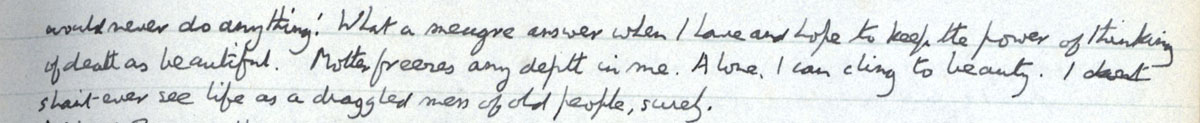 would never do anything! What a meagre answer when I have and hope to keep the power of thinking
of death as beautiful. Mother freezes any depth in me. Alone, I can cling to beauty. I
shan't ever see life as a draggled mess of old people, surely.